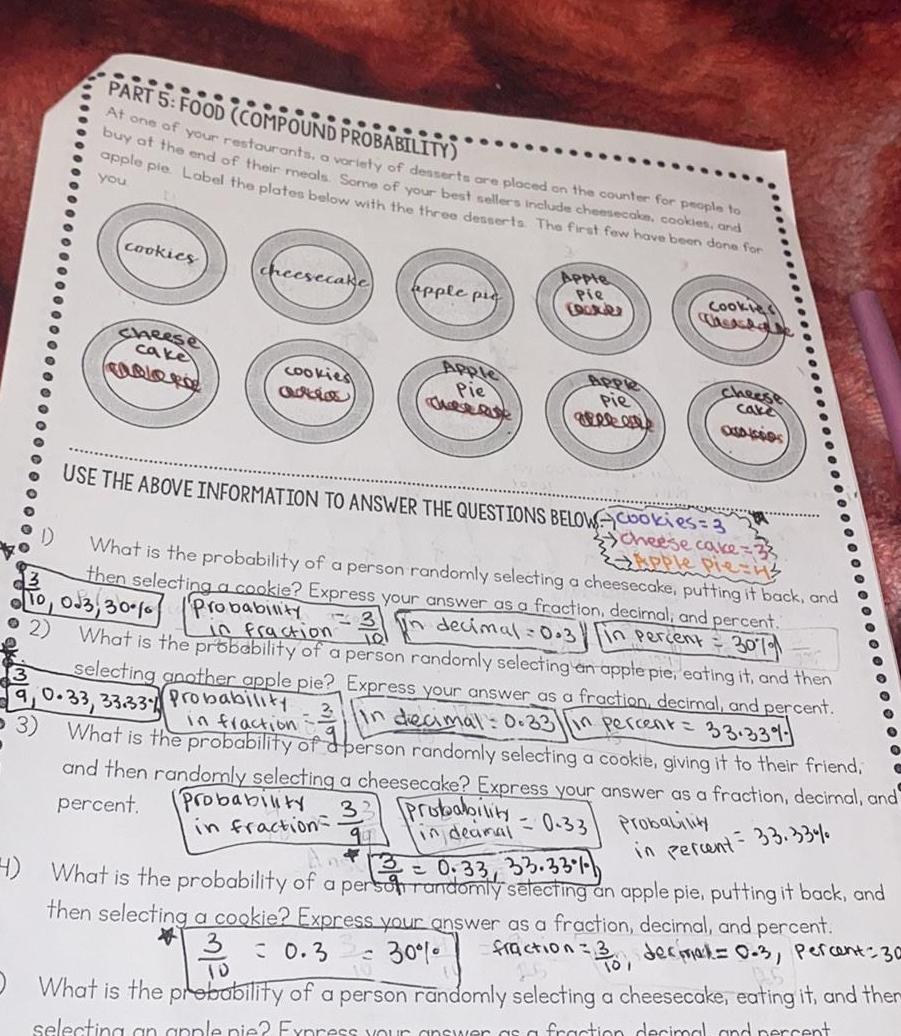 PART 5: FOOD (COMPOUND PROBABILITY)
At one of your restaurants, a variety of desserts are placed on the counter for people to
buy at the end of their meals. Some of your best sellers include cheesecake, cookies, and
apple pie. Label the plates below with the three desserts. The first few have been done for
you.
cookies
cheesecake
apple pie
Apple
Pie
Cookies
Cheese
cake
cookies
Apple
Pie
Apple
Pie
Cheese
cake
USE THE ABOVE INFORMATION TO ANSWER THE QUESTIONS BELOW
→ cookies = 3
→ cheese cake = 3
→ Apple pie = 4
1) What is the probability of a person randomly selecting a cheesecake, putting it back, and
then selecting a cookie? Express your answer as a fraction, decimal, and percent.
3/10, 0.3, 30%
Probability in fraction = 3/10
in decimal = 0.3
in percent = 30%
2) What is the probability of a person randomly selecting an apple pie, eating it, and then
selecting another apple pie? Express your answer as a fraction, decimal, and percent.
3/9, 0.33, 33.33%
Probability in fraction = 3/9
in decimal = 0.33
in percent = 33.33%
3) What is the probability of a person randomly selecting a cookie, giving it to their friend,
and then randomly selecting a cheesecake? Express your answer as a fraction, decimal, and
percent.
Probability in fraction = 3/9
probability in decimal = 0.33
Probability in percent = 33.33%
3/9 = 0.33, 33.33%
4) What is the probability of a person randomly selecting an apple pie, putting it back, and
then selecting a cookie? Express your answer as a fraction, decimal, and percent.
3/10 = 0.3 = 30%
fraction = 3/10, decimal = 0.3, Percent = 30
What is the probability of a person randomly selecting a cheesecake, eating it, and then
selecting an apple pie? Express your answer as a fraction, decimal, and percent.